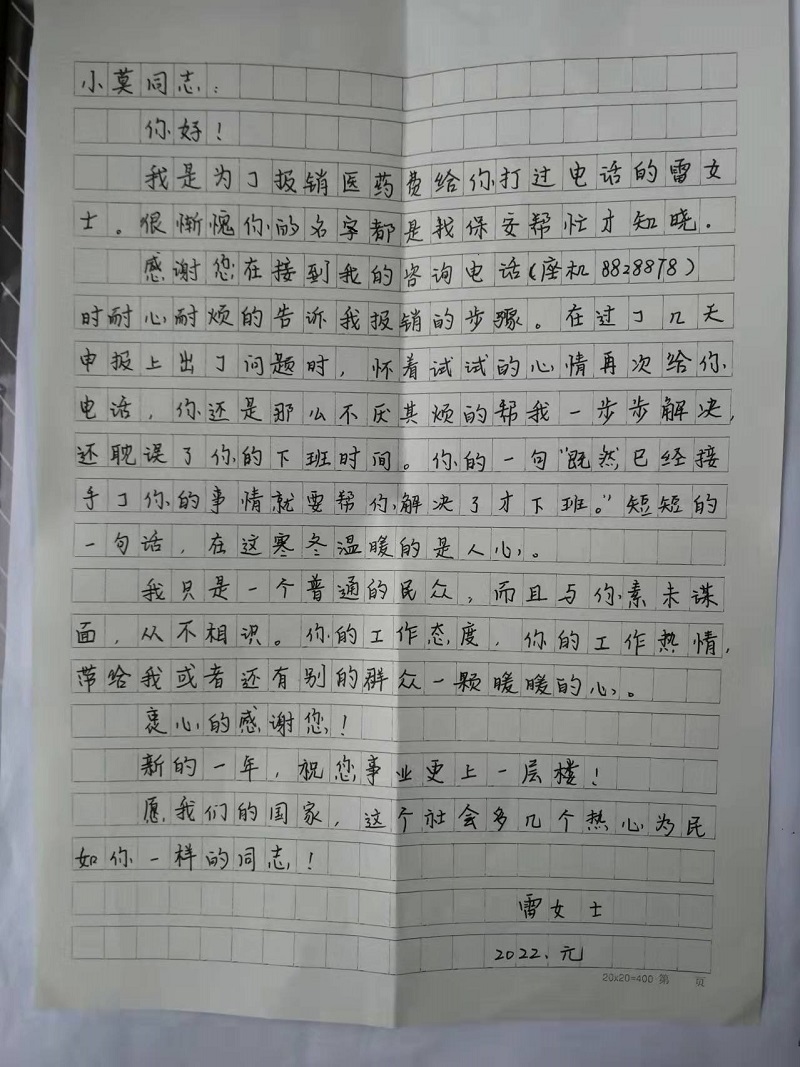 小莫同志：
你好！
我是为了报销医药费给你打过电话的雷女
士。很惭愧你的名字都是我保安帮忙才知晓.
感谢您在接到我的咨询电话(座机8828878)
时耐心耐烦的告诉我报销的步骤。在过了几天
申报上出了问题时，怀着试试的心情再次给你
电话，你还是那么不厌其烦的帮我一步步解决，
还耽误了你的下班时间。你的一句“既然已经接
手了你的事情就要帮你解决了才下班。”短短的
一句话，在这寒冬温暖的是人心。
我只是一个普通的民众，而且与你素未谋
面，从不相识。你的工作态度，你的工作热情，
带给我或者还有别的群众一颗暖暖的心。
衷心的感谢您！
新的一年，祝您事业更上一层楼！
愿我们的国家，这个社会多几个热心为民
如你一样的同志！
雷女士
2022.元
20x20=400 第 页